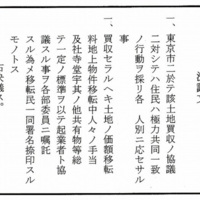 一、東京市ニ於テ該土地買収ノ協議
二対シテハ住民ハ極力共同一致
ノ行動ヲ採リ各人別ニ応セサル
事
一、買収セラルヘキ土地ノ価額移転
料地上物件移転中人々ノ手当
及社寺堂宇其ノ他共有物等総
テ一定ノ標準ヲ以テ起業者ト協
議スル事ヲ各部委員ニ嘱託
スル為メ移転民一同署名捺印スル
モノトス